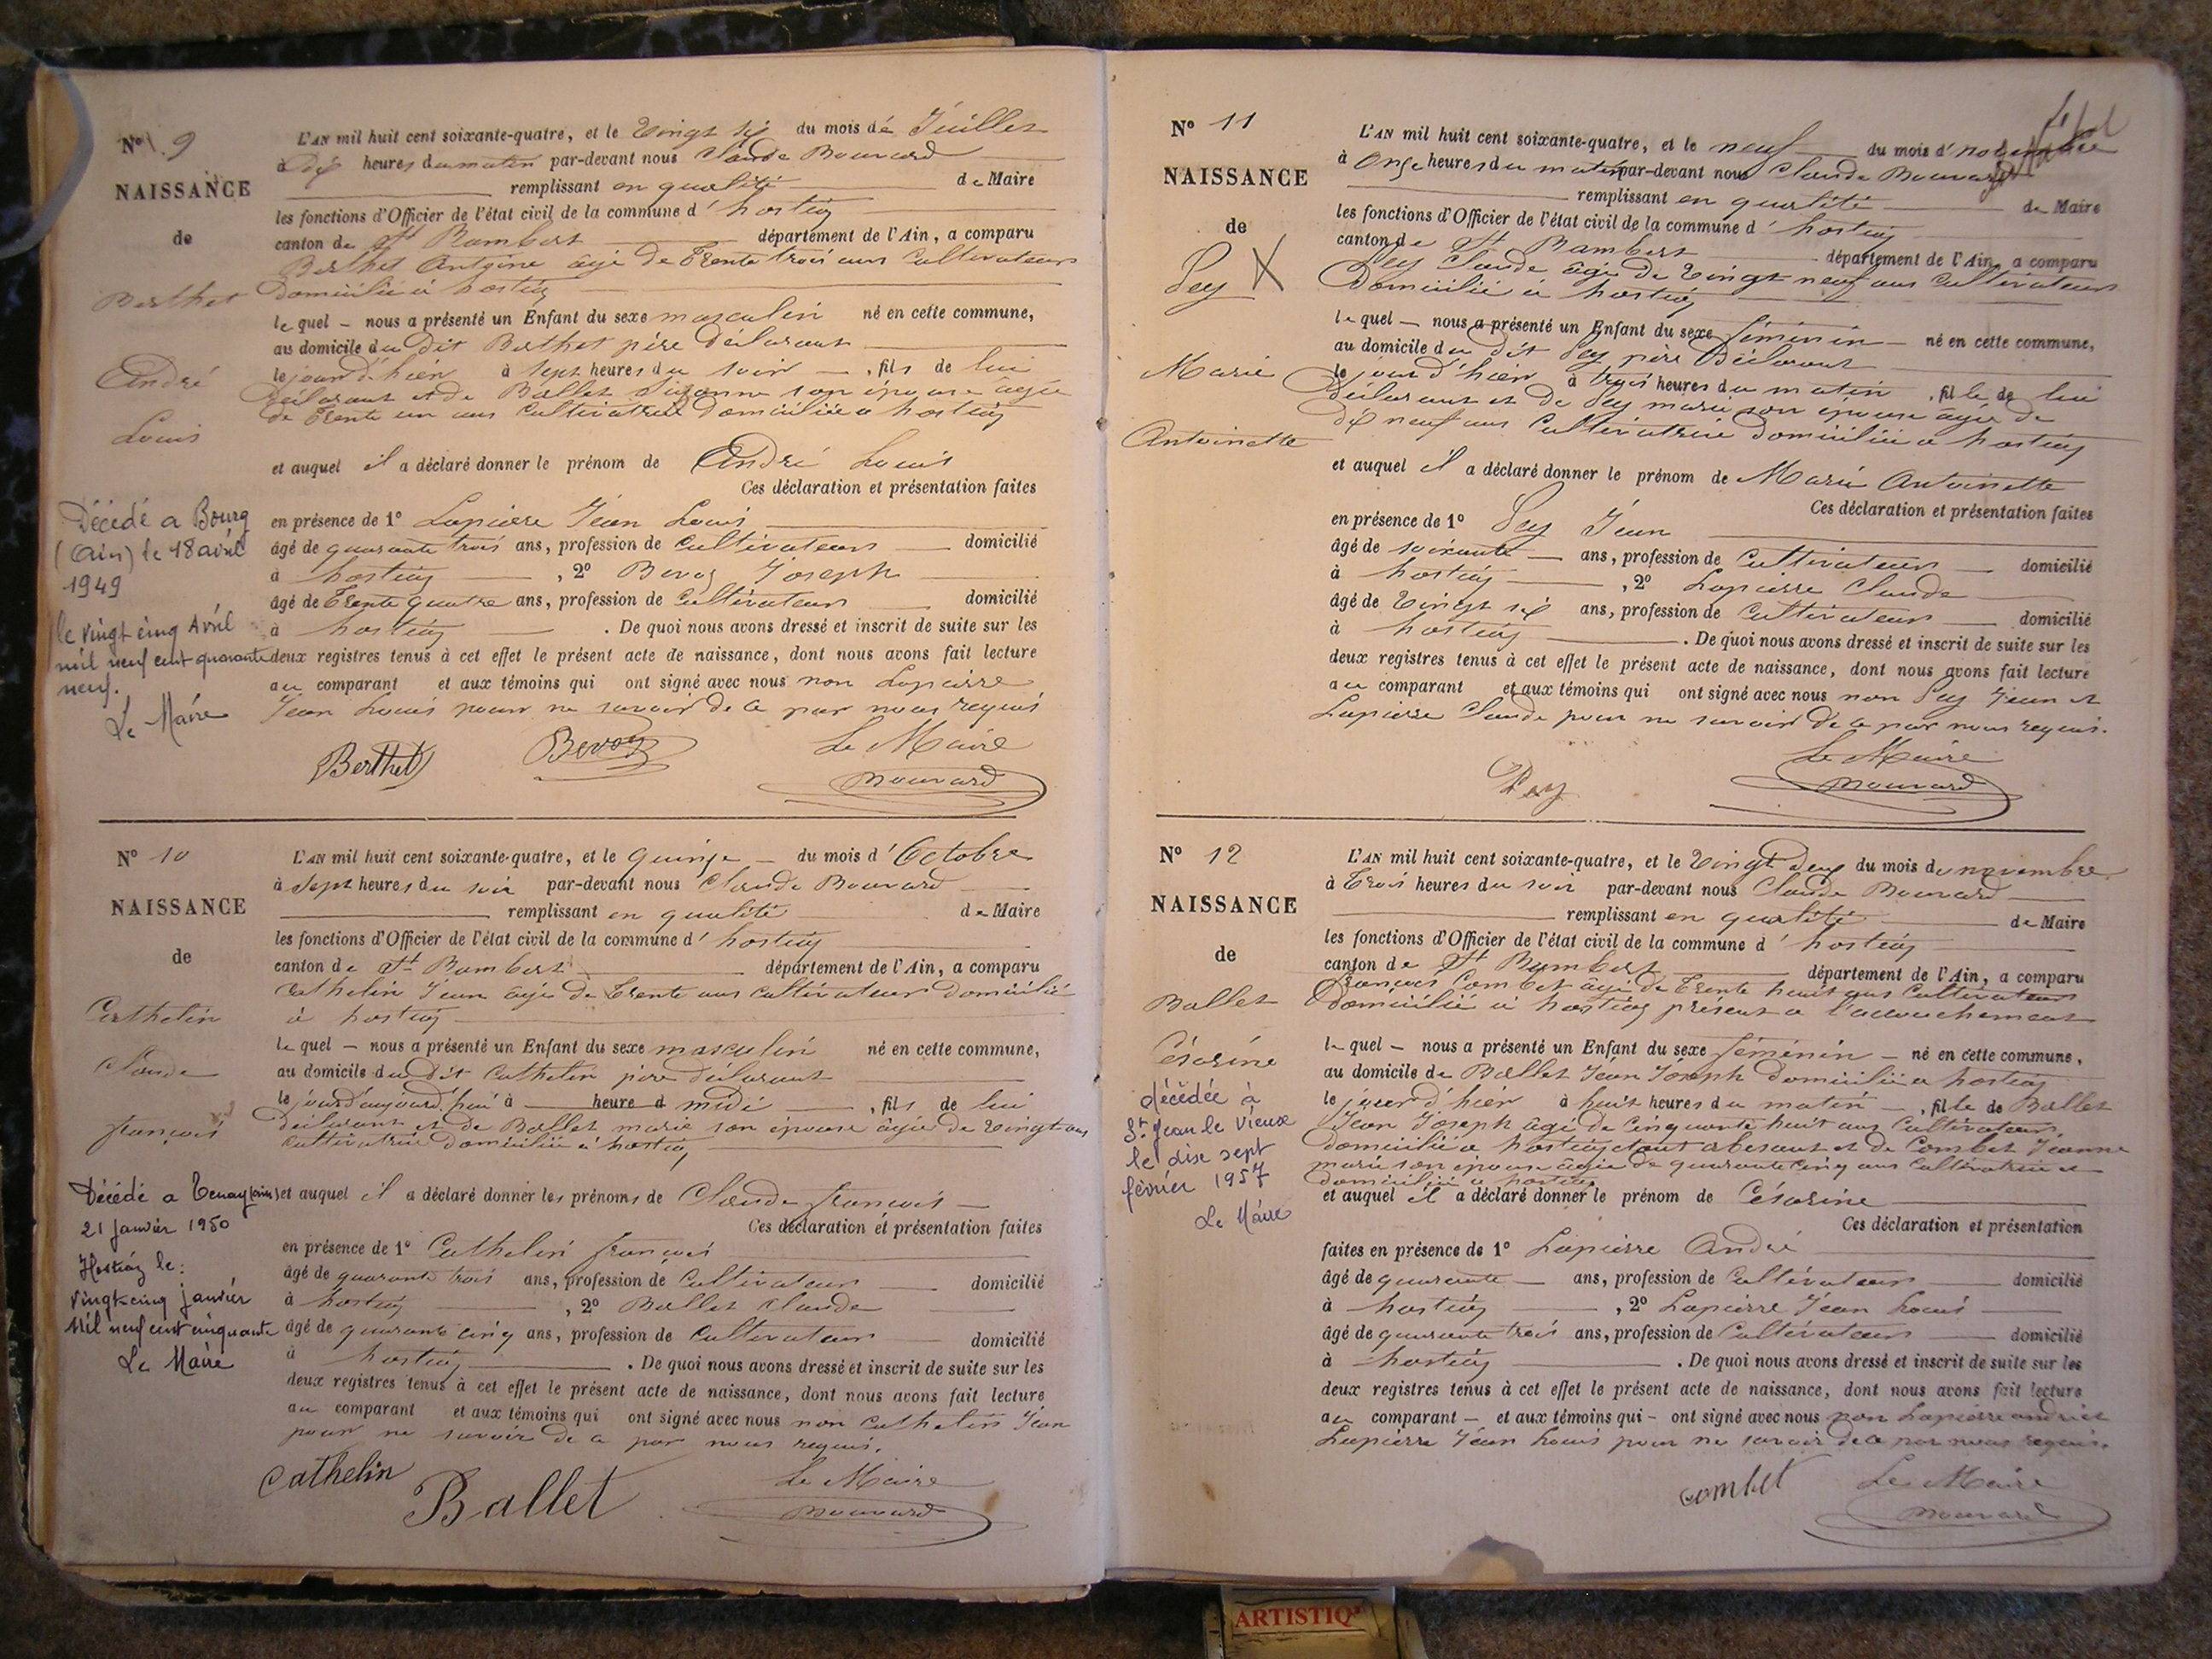 N° 9
NAISSANCE
de
Berthet
André
Louis
Décédé a Bourg
(Ain) le 18 avril
1949
le vingt cinq Avril
mil neuf cent quarante
neuf.
Le Maire
L'AN mil huit cent soixante-quatre, et le Vingt six du mois de Juillet
à dix heures du matin par-devant nous Claude Bouvard
remplissant en qualité de Maire
les fonctions d'Officier de l'état civil de la commune d' hostiaz
canton de St Rambert département de l'Ain, a comparu
Berthet Antoine âgé de Trente trois ans Cultivateur
Domicilié à hostiaz
lequel – nous a présenté un Enfant du sexe masculin né en cette commune,
au domicile du dit Berthet père déclarant
le jour d'hier à sept heures du soir – , fils de lui
déclarant et de Ballet Suzanne son épouse âgée
de Trente un ans Cultivatrice Domiciliée a hostiaz
et auquel il a déclaré donner le prénom de André Louis
Ces déclaration et présentation faites
en présence de 1° Lapierre Jean Louis
âgé de quarante trois ans, profession de Cultivateur domicilié
à hostiaz , 2° Bevoz Joseph
âgé de Trente quatre ans, profession de Cultivateur domicilié
à hostiaz . De quoi nous avons dressé et inscrit de suite sur les
deux registres tenus à cet effet le présent acte de naissance, dont nous avons fait lecture
au comparant et aux témoins qui ont signé avec nous non Lapierre
Jean Louis pour ne savoir de ce par nous requis
Berthet Bevoz Le Maire
Bouvard
N° 10
NAISSANCE
de
Cathelin
Claude
françois
Décédé a Tenay (ain)
21 Janvier 1950
Hostiaz le:
Vingt-cinq janvier
Mil neuf cent cinquante
Le Maire
L'AN mil huit cent soixante-quatre, et le quinze – du mois d' Octobre
à Sept heures du soir par-devant nous Claude Bouvard
remplissant en qualité de Maire
les fonctions d'Officier de l'état civil de la commune d' hostiaz
canton de St Rambert département de l'Ain, a comparu
Cathelin Jean âgé de Trente ans Cultivateur Domicilié
à hostiaz
lequel – nous a présenté un Enfant du sexe masculin né en cette commune,
au domicile du dit Cathelin père déclarant
le jour d'aujourd'hui à heure d midi , fils de lui
déclarant et de Ballet marie son épouse âgée de Vingt ans
Cultivatrice Domiciliée à hostiaz
et auquel il a déclaré donner les prénoms de Claude françois –
Ces déclaration et présentation faites
en présence de 1° Cathelin françois
âgé de quarante trois ans, profession de Cultivateur domicilié
à hostiaz , 2° Ballet Claude
âgé de quarante cinq ans, profession de Cultivateur domicilié
à hostiaz . De quoi nous avons dressé et inscrit de suite sur les
deux registres tenus à cet effet le présent acte de naissance, dont nous avons fait lecture
au comparant et aux témoins qui ont signé avec nous non Cathelin Jean
pour ne savoir de ce par nous requis.
Cathelin Ballet Le Maire
Bouvard
N° 11
NAISSANCE
de
Pey X
Marie
Antoinette
L'AN mil huit cent soixante-quatre, et le neuf du mois d' novembre
à Onze heures du matin par-devant nous Claude Bouvard
remplissant en qualité de Maire
les fonctions d'Officier de l'état civil de la commune d' hostiaz
canton de St Rambert département de l'Ain, a comparu
Pey Claude âgé de Vingt neuf ans Cultivateur
Domicilié à hostiaz
lequel – nous a présenté un Enfant du sexe féminin – né en cette commune,
au domicile du dit Pey père Déclarant
le jour d'hier à trois heures du matin , fille de lui
déclarant et de Pey marie son épouse âgée de
dix neuf ans Cultivatrice Domiciliée a hostiaz
et auquel il a déclaré donner le prénom de Marie Antoinette
Ces déclaration et présentation faites
en présence de 1° Pey Jean
âgé de soixante – ans, profession de Cultivateur domicilié
à hostiaz , 2° Lapierre Claude
âgé de Vingt six ans, profession de Cultivateur domicilié
à hostiaz . De quoi nous avons dressé et inscrit de suite sur les
deux registres tenus à cet effet le présent acte de naissance, dont nous avons fait lecture
au comparant et aux témoins qui ont signé avec nous non Pey Jean et
Lapierre Claude pour ne savoir de ce par nous requis.
Pey Le Maire
Bouvard
N° 12
NAISSANCE
de
Ballet
Césarine
décédée à
St Jean le Vieux
le dix sept
février 1957
Le Maire
L'AN mil huit cent soixante-quatre, et le Vingt Deux du mois de novembre
à Trois heures du soir par-devant nous Claude Bouvard
remplissant en qualité de Maire
les fonctions d'Officier de l'état civil de la commune d' hostiaz
canton de St Rambert département de l'Ain, a comparu
François Combet âgé de Trente huit ans Cultivateur
Domicilié à hostiaz présent a l'accouchement
lequel – nous a présenté un Enfant du sexe féminin – né en cette commune,
au domicile de Ballet Jean Joseph domicilié a hostiaz
le jour d'hier à huit heures du matin – , fille de Ballet
Jean Joseph âgé de Cinquante huit ans Cultivateur
domicilié a hostiaz etant absent et de Combet Jeanne
marie son épouse âgée de quarante cinq ans Cultivatrice
domiciliée a hostiaz
et auquel il a déclaré donner le prénom de Césarine
Ces déclaration et présentation
faites en présence de 1° Lapierre André
âgé de quarante – ans, profession de Cultivateur domicilié
à hostiaz , 2° Lapierre Jean Louis
âgé de quarante trois ans, profession de Cultivateur domicilié
à hostiaz . De quoi nous avons dressé et inscrit de suite sur les
deux registres tenus à cet effet le présent acte de naissance, dont nous avons fait lecture
au comparant – et aux témoins qui – ont signé avec nous non Lapierre andré et
Lapierre Jean Louis pour ne savoir de ce par nous requis.
combet Le Maire
Bouvard
ARTISTIQ